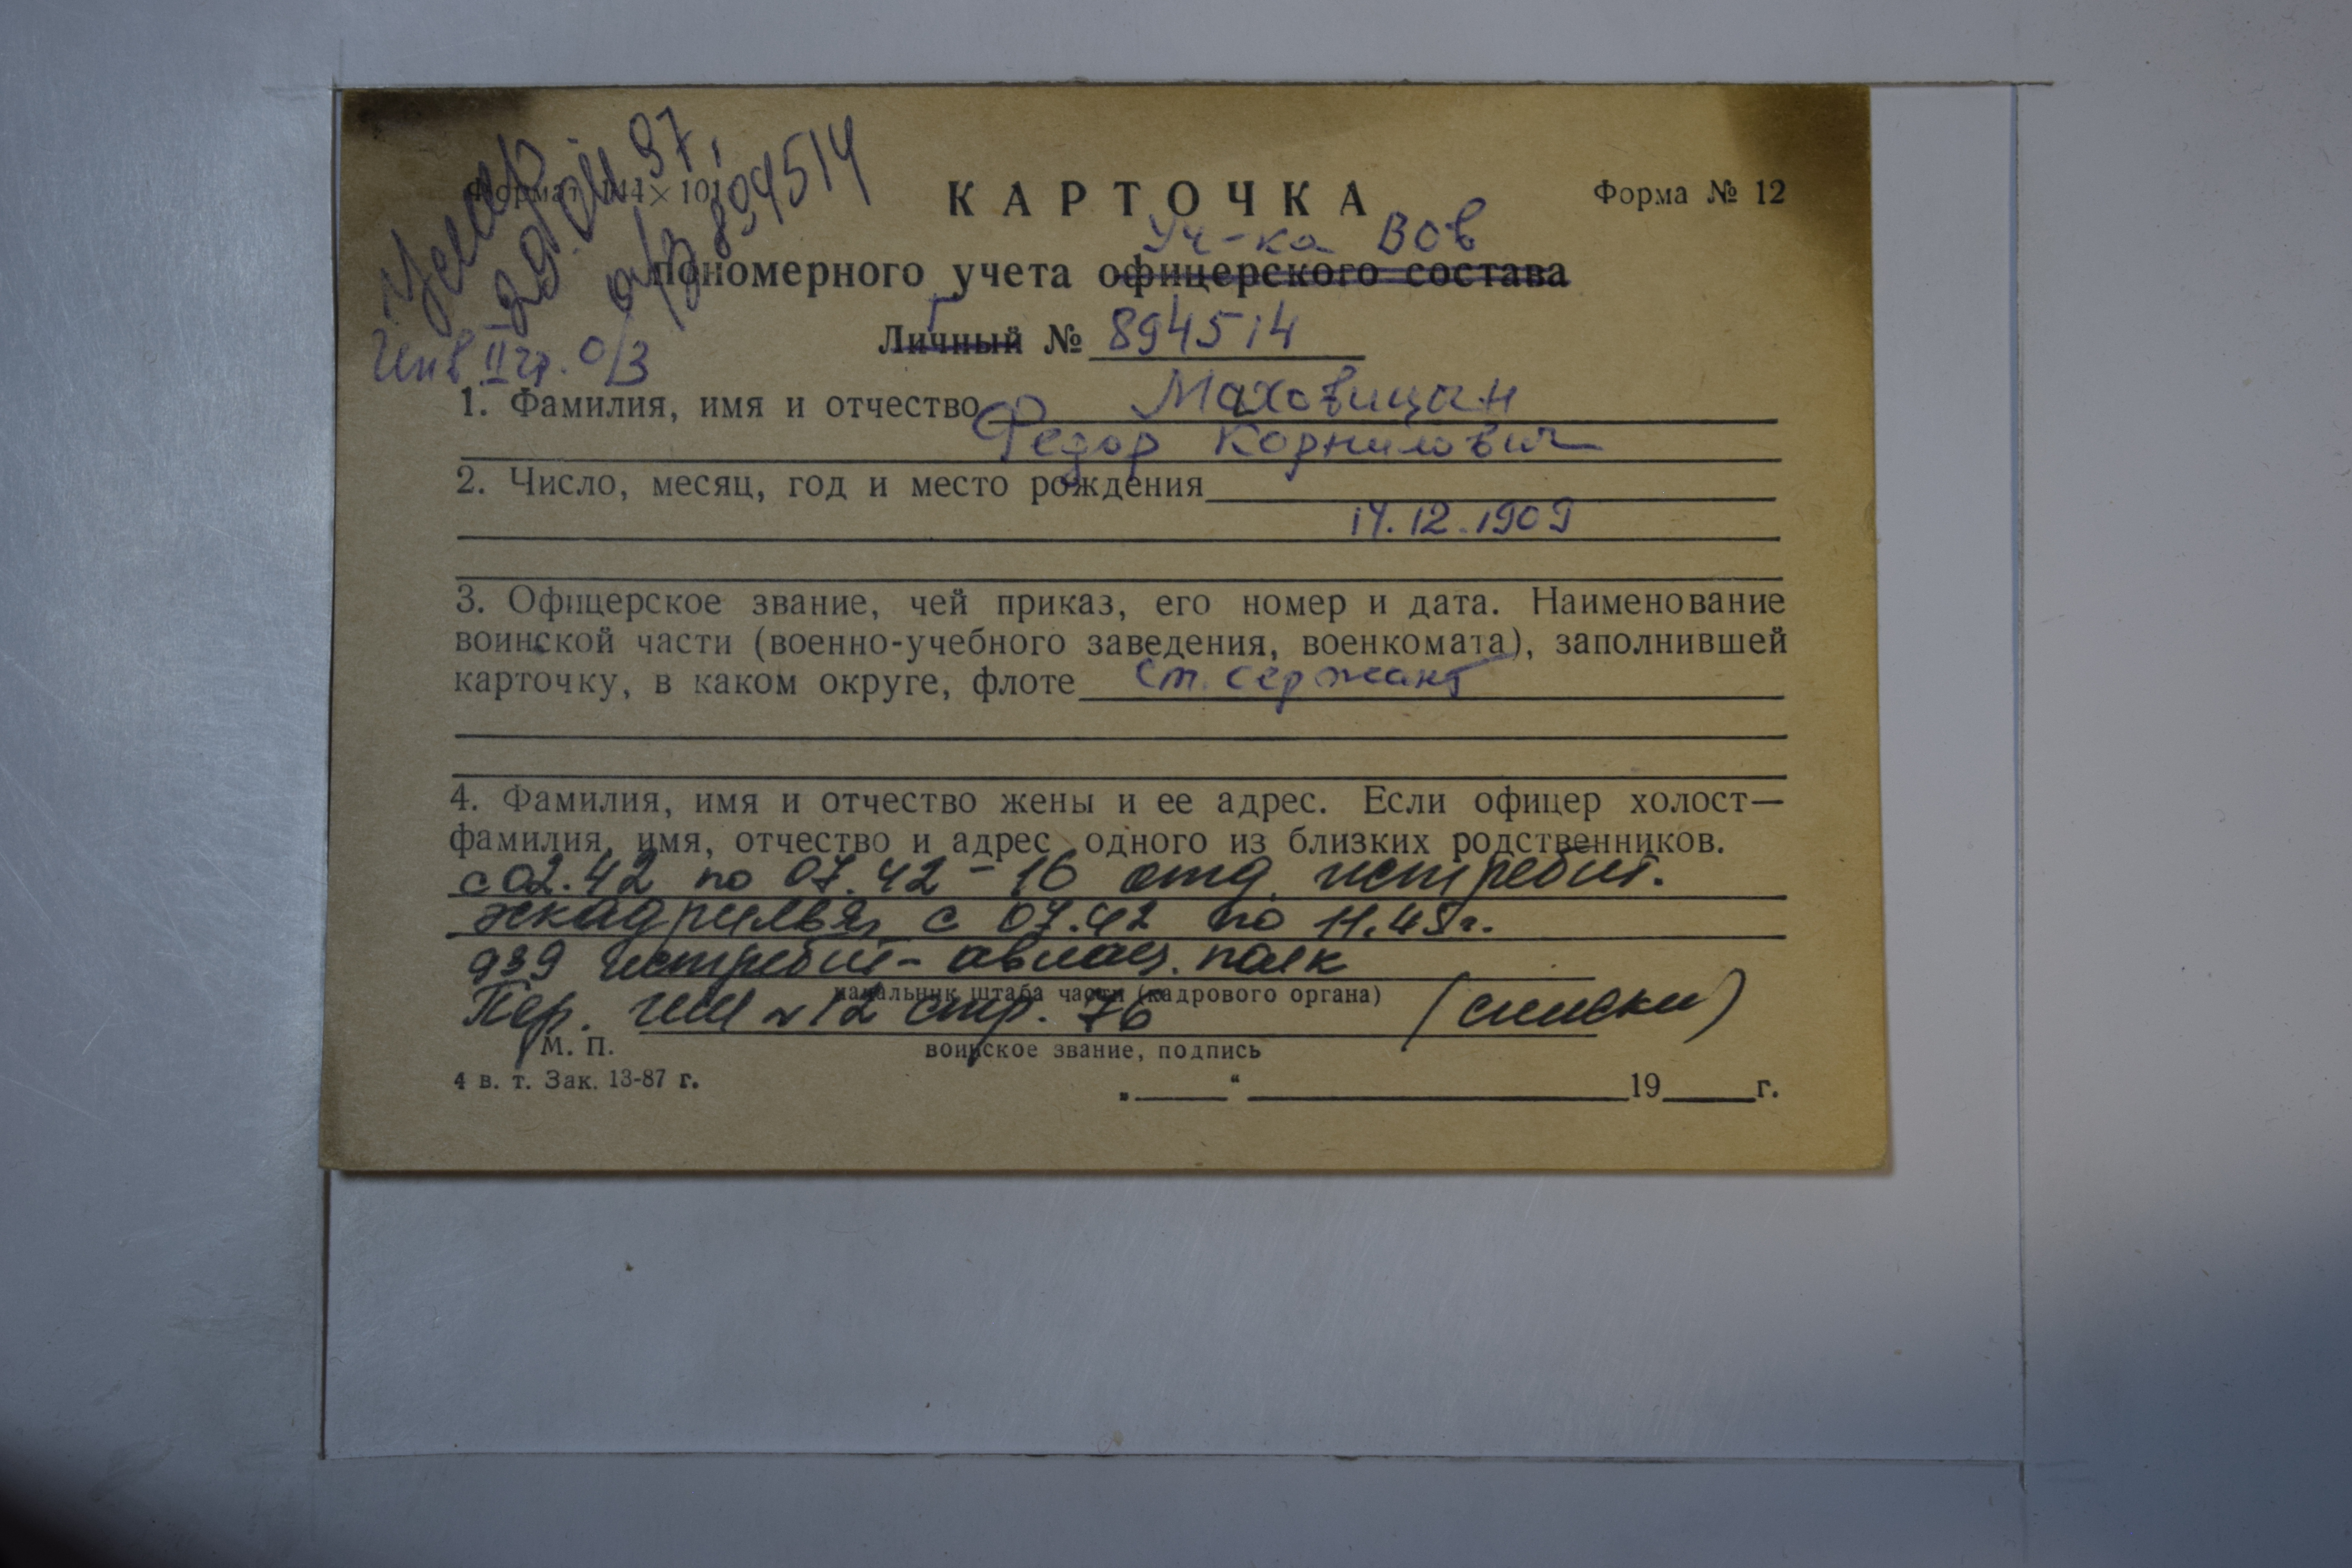 Умер
29.04.97.
о/з 894514
Инв. II гр. о/з
Формат 144×101
КАРТОЧКА
Форма № 12
Уч-ка ВОв
пономерного учета офицерского состава
Г
Личный № 894514
1. Фамилия, имя и отчество Маховицын
Федор Корнилович
2. Число, месяц, год и место рождения
14.12.1909
3. Офицерское звание, чей приказ, его номер и дата. Наименование
воинской части (военно-учебного заведения, военкомата), заполнившей
карточку, в каком округе, флоте ст. сержант
4. Фамилия, имя и отчество жены и ее адрес. Если офицер холост—
фамилия, имя, отчество и адрес одного из близких родственников.
с 02.42 по 07.42 - 16 отд. истребит.
эскадрилья, с 07.42 по 11.45г.
939 истребит- авиац. полк
начальник штаба части (кадрового органа)
Пер. №12 стр. 76 (списки)
М. П.
воинское звание, подпись
4 в. т. Зак. 13-87 г.
„ “ 19 г.